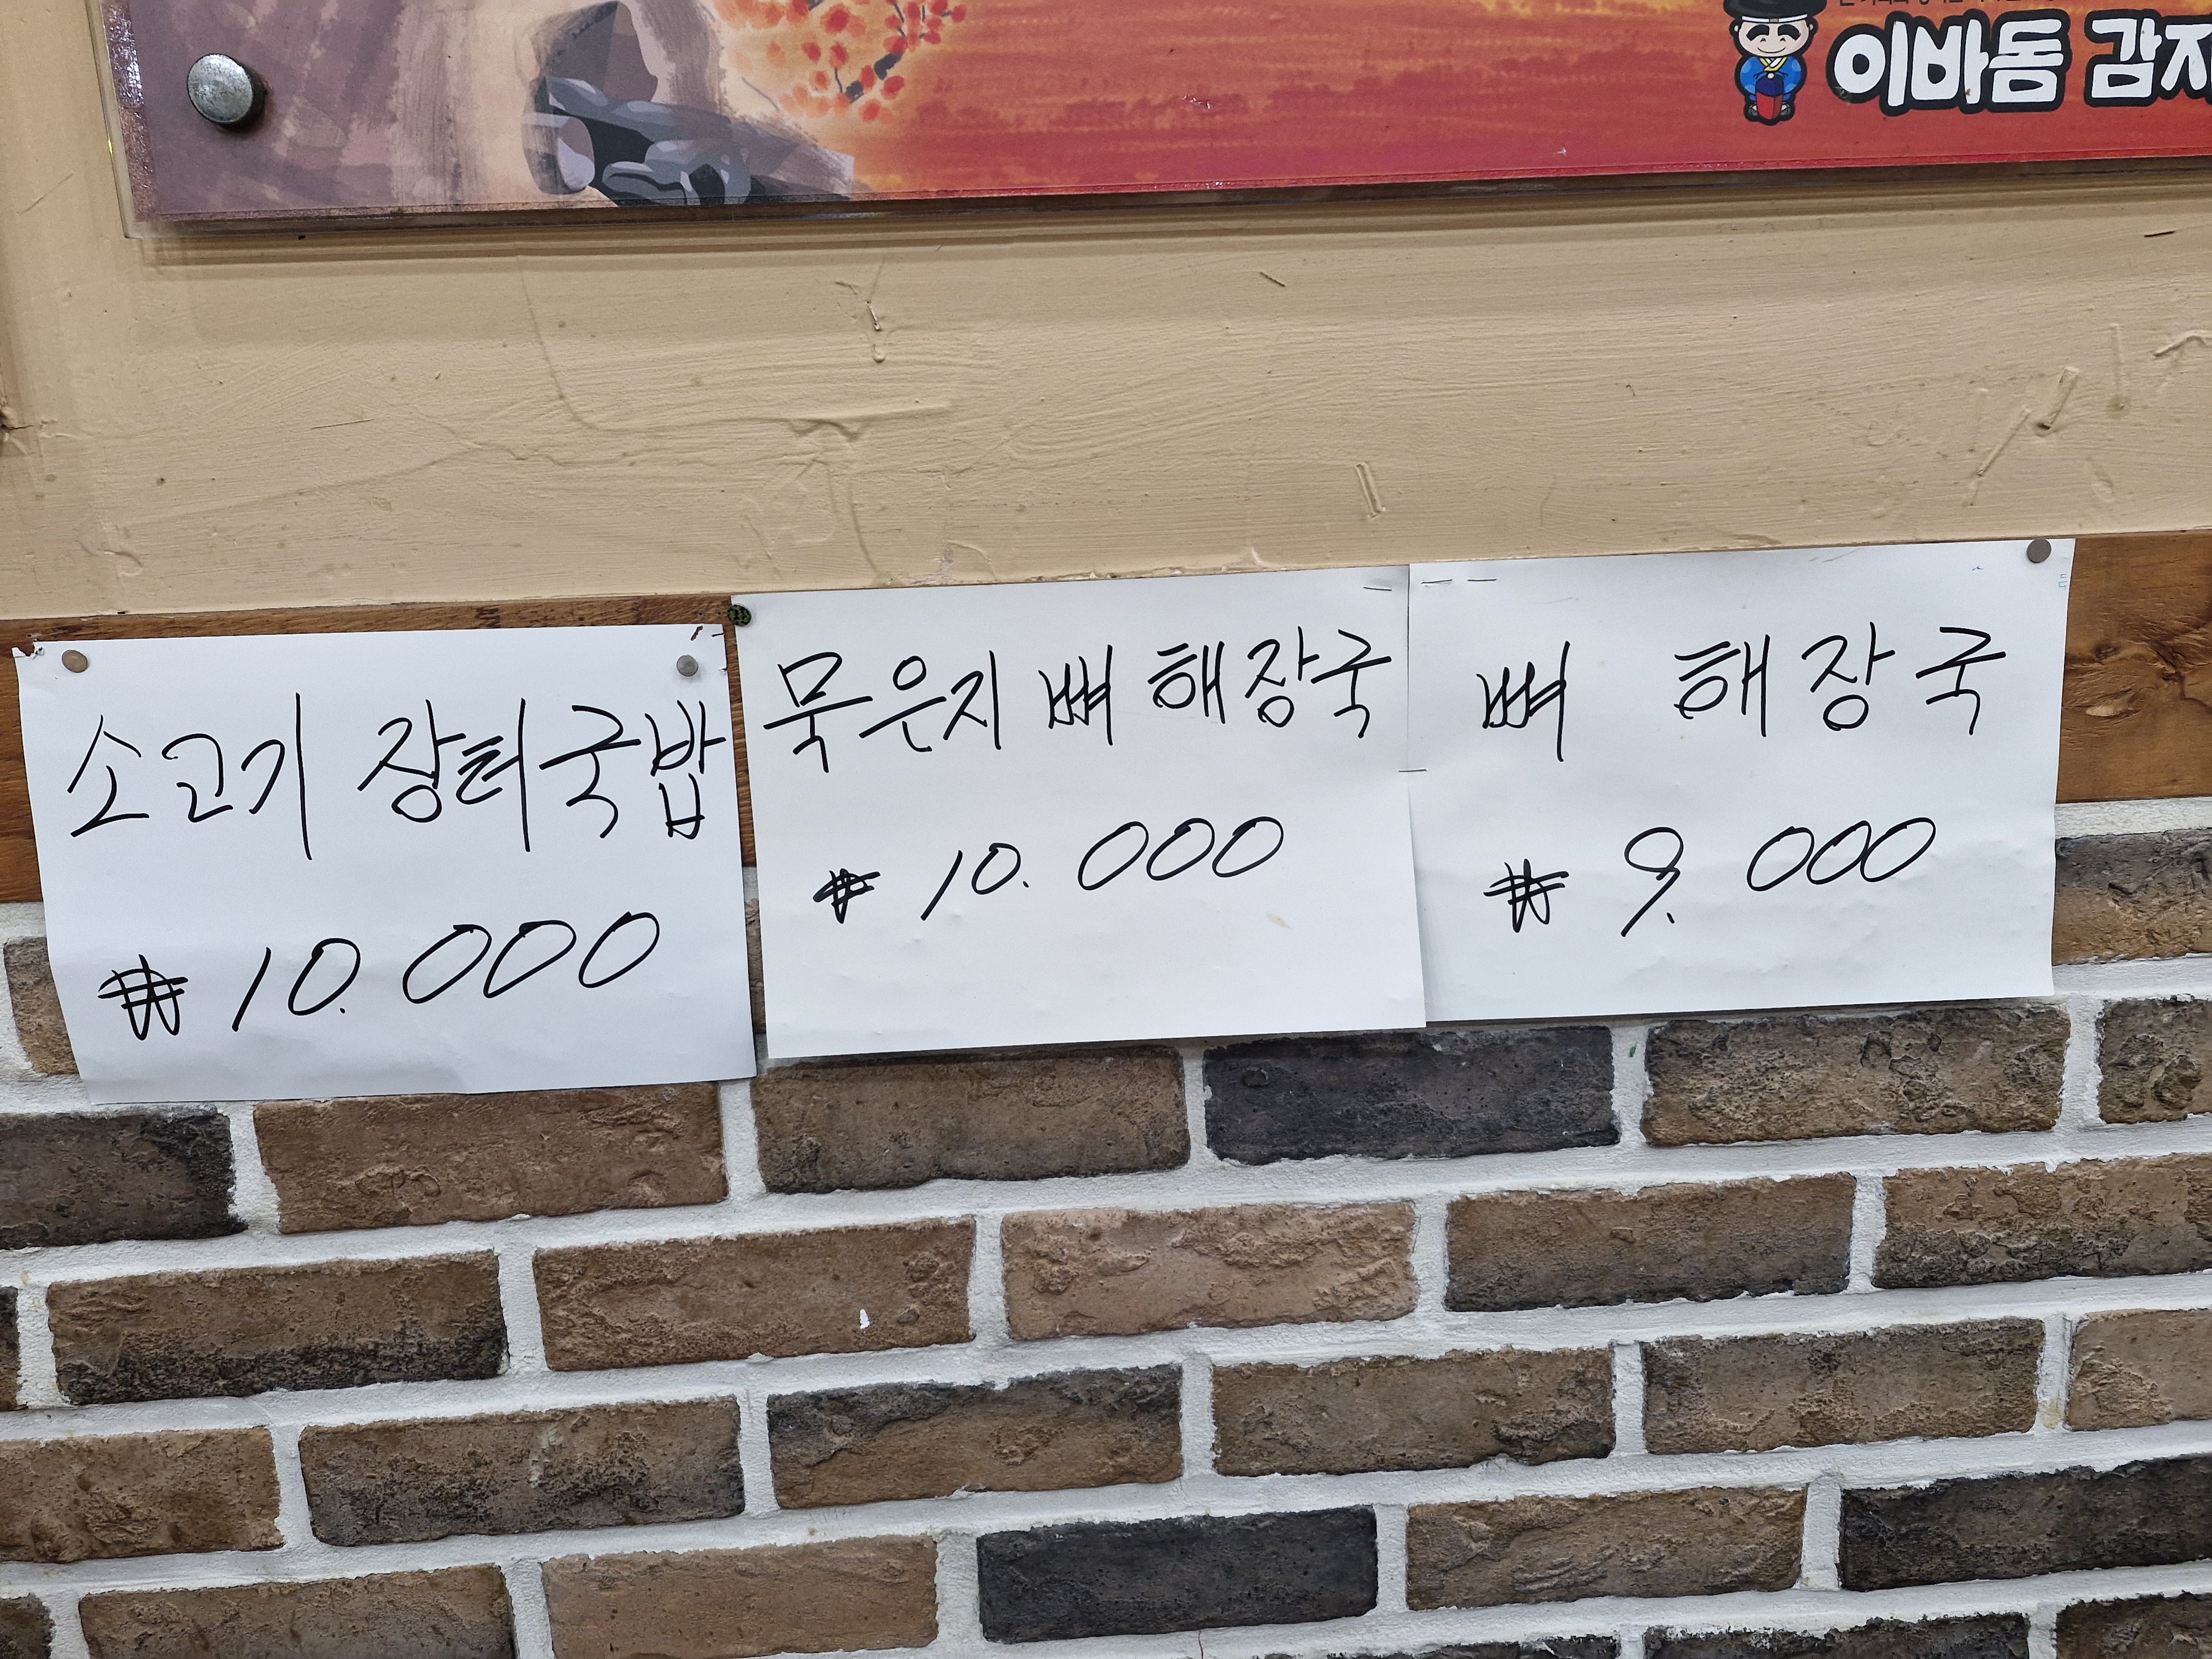 이바돔 감자
소고기 장터국밥
₩ 10.000
묵은지 뼈 해장국
₩ 10.000
뼈 해장국
₩ 9.000